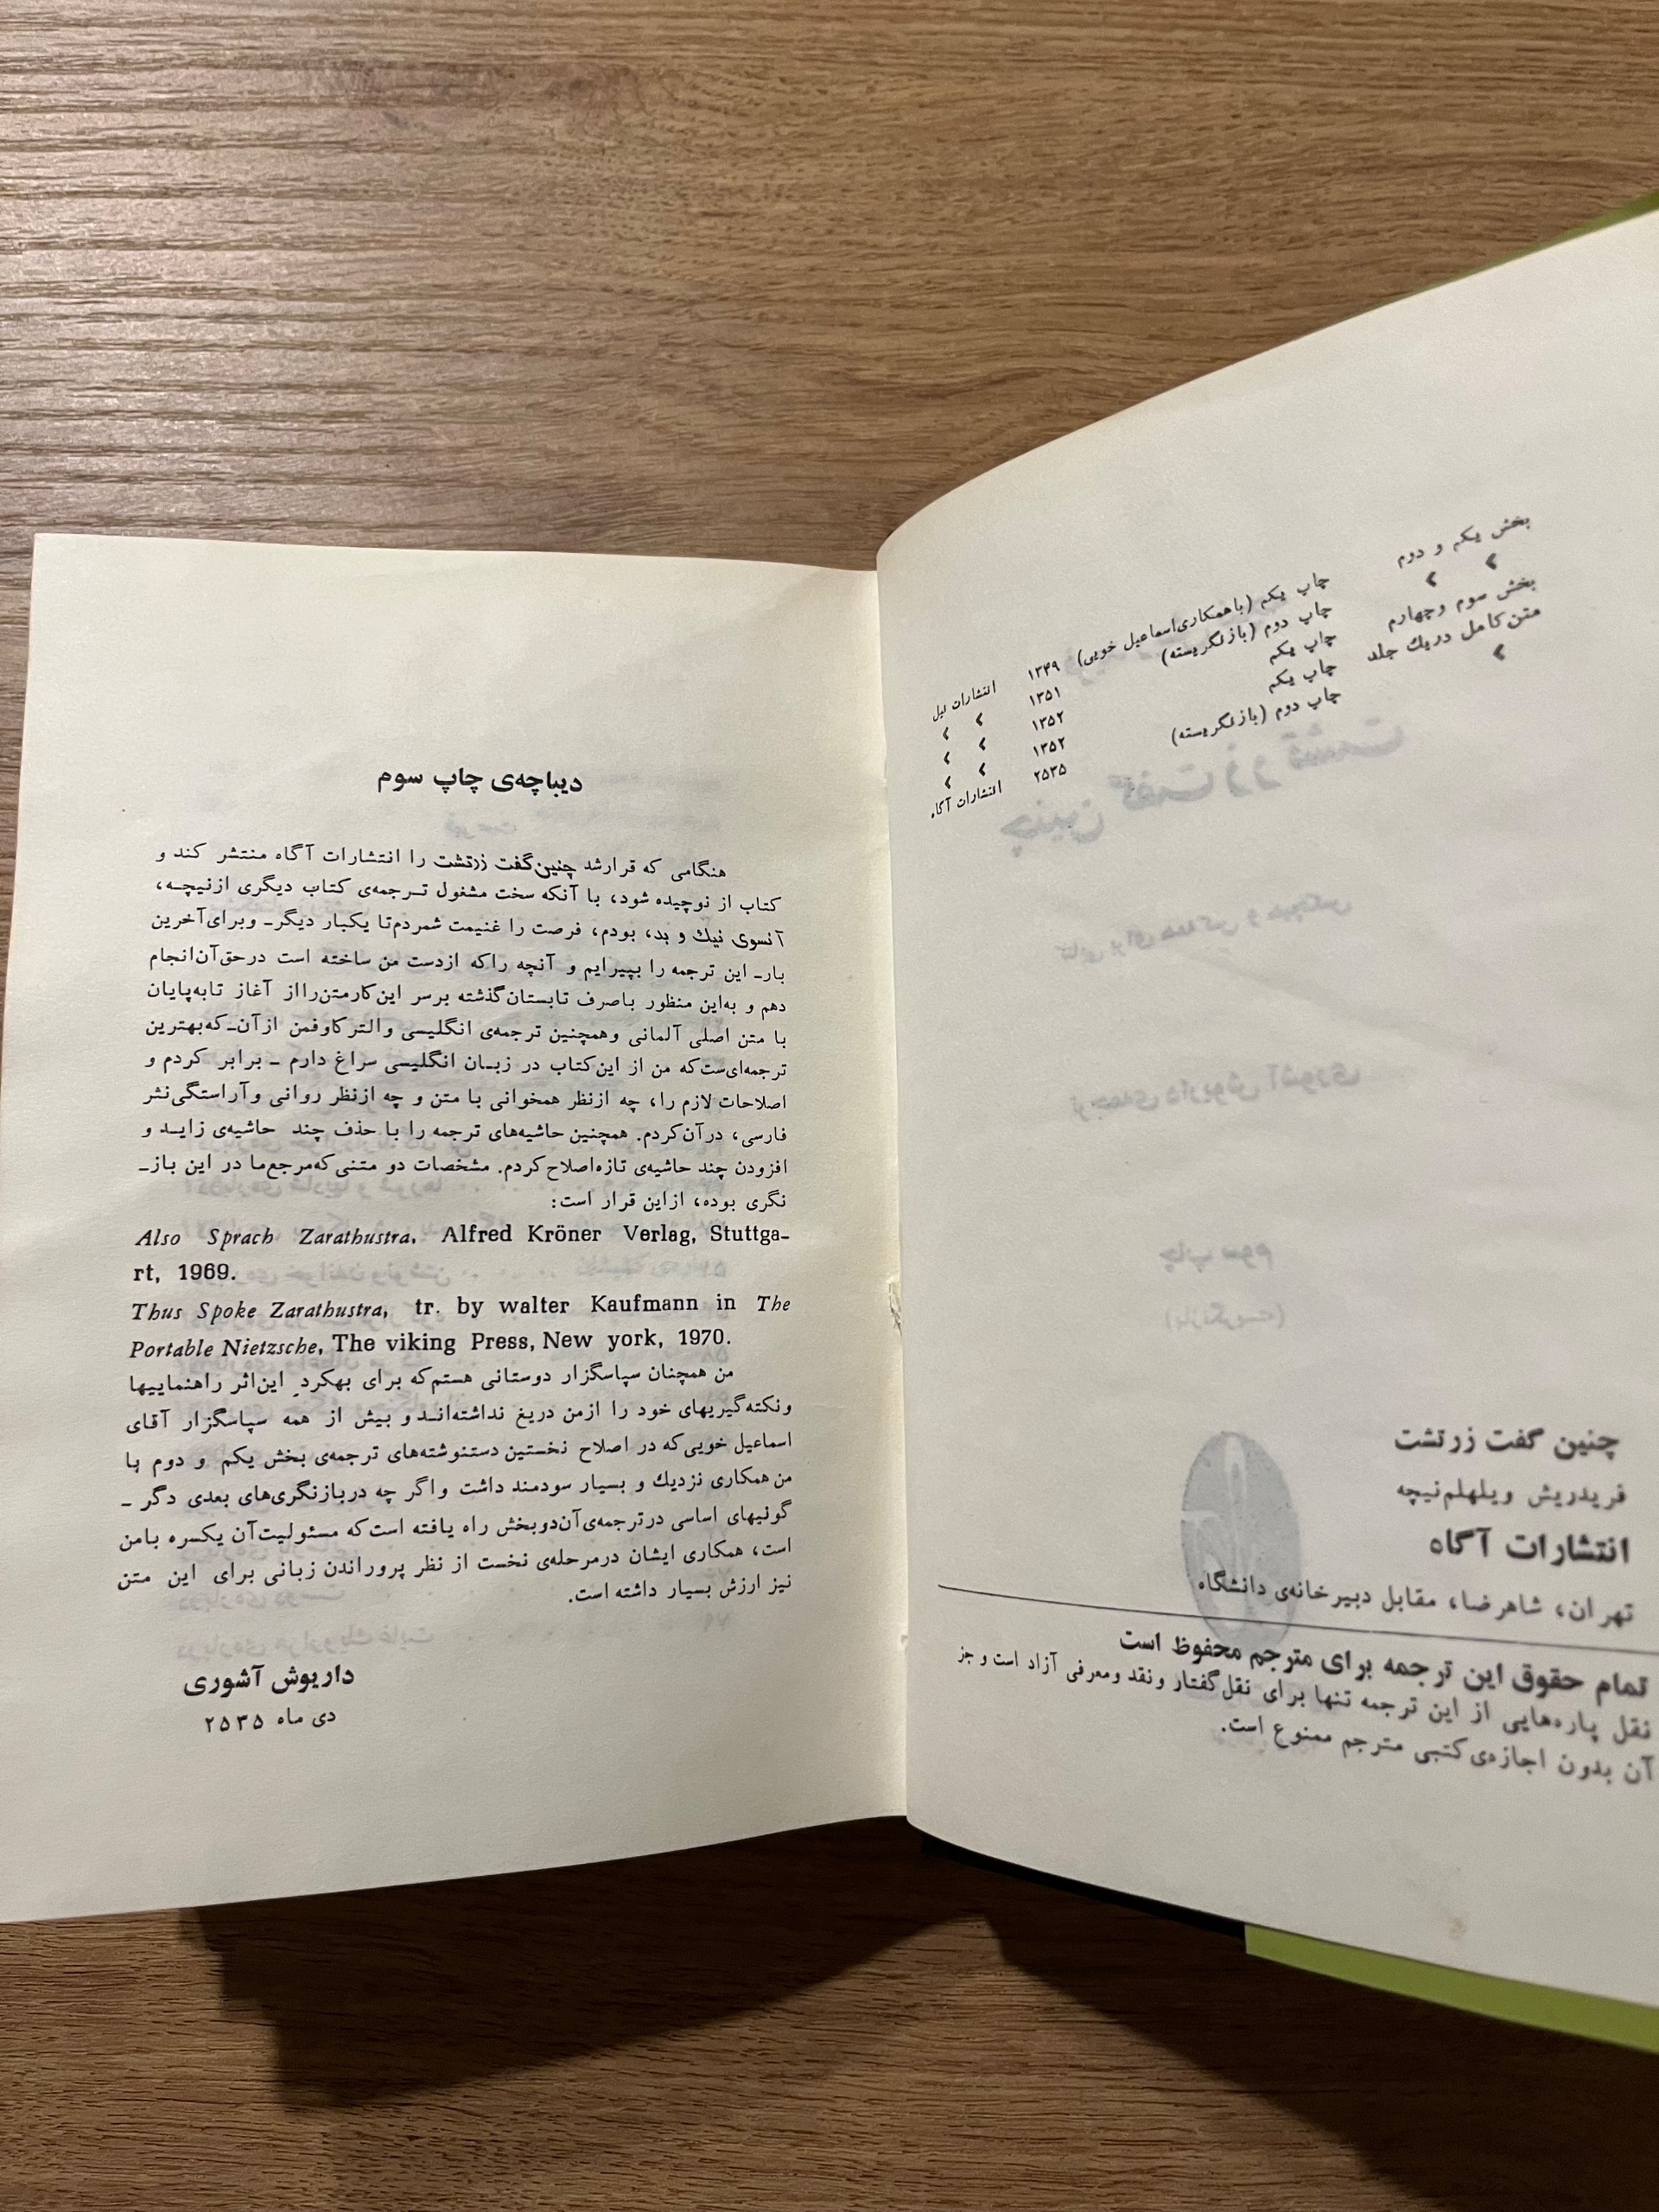 بخش یکم و دوم چاپ یکم (باهمکاری‌اسماعیل خویی) ۱۳۴۹ انتشارات نیل
» » چاپ دوم (بازنگریسته) ۱۳۵۱ » »
بخش سوم وچهارم چاپ یکم ۱۳۵۲ » »
متن‌کامل دریك جلد چاپ یکم ۱۳۵۲ » »
» چاپ دوم (بازنگریسته) ۲۵۳۵ انتشارات آگاه
چنین گفت زرتشت
فریدریش ویلهلم‌نیچه
انتشارات آگاه
تهران، شاهرضا، مقابل دبیرخانه‌ی دانشگاه
تمام حقوق این ترجمه برای مترجم محفوظ است
نقل پاره‌هایی از این ترجمه تنها برای نقل‌گفتار ونقد ومعرفی آزاد است و جز
آن بدون اجازه‌ی‌کتبی مترجم ممنوع است.
دیباچه‌ی چاپ سوم
هنگامی که قرارشد چنین‌گفت زرتشت را انتشارات آگاه منتشر کند و
کتاب از نوچیده شود، با آنکه سخت مشغول تـرجمه‌ی کتاب دیگری ازنیچـه،
آنسوی نیك و بد، بودم، فرصت را غنیمت شمردم‌تا یکبار دیگرـ وبرای‌آخرین
بارـ این ترجمه را بپیرایم و آنچه راکه ازدست من ساخته است درحق‌آن‌انجام
دهم و به‌این منظور باصرف تابستان‌گذشته برسر این‌کارمتن‌رااز آغاز تابه‌پایان
با متن اصلی آلمانی وهمچنین ترجمه‌ی انگلیسی والترکاوفمن ازآن‌ـ‌که‌بهترین
ترجمه‌ای‌ست‌که من از این‌کتاب در زبـان انگلیسی سراغ دارم ـ برابر کردم و
اصلاحات لازم را، چه ازنظر همخوانی با متن و چه ازنظر روانی وآراستگی‌نثر
فارسی، درآن‌کردم. همچنین حاشیه‌های ترجمه را با حذف چند حاشیه‌ی زایـد و
افزودن چند حاشیه‌ی تازه‌اصلاح‌کردم. مشخصات دو متنی‌که‌مرجع‌ما در این بازـ
نگری بوده، ازاین قرار است:
Also Sprach Zarathustra, Alfred Kröner Verlag, Stuttga-
rt, 1969.
Thus Spoke Zarathustra, tr. by walter Kaufmann in The
Portable Nietzsche, The viking Press, New york, 1970.
من همچنان سپاسگزار دوستانی هستم‌که برای بهکرد این‌اثر راهنماییها
ونکته‌گیریهای خود را ازمن دریغ نداشته‌انـد و بیش از همه سپاسگزار آقای
اسماعیل خویی‌که در اصلاح نخستین دستنوشته‌های ترجمه‌ی بخش یکم و دوم با
من همکاری نزدیك و بسیار سودمند داشت واگر چه دربازنگری‌های بعدی دگر ـ
گونیهای اساسی درترجمه‌ی‌آن‌دوبخش راه یافته است‌که مسئولیت‌آن یکسره بامن
است، همکاری ایشان درمرحله‌ی نخست از نظر پروراندن زبانی برای این متن
نیز ارزش بسیار داشته است.
داریوش آشوری
دی ماه ۲۵۳۵